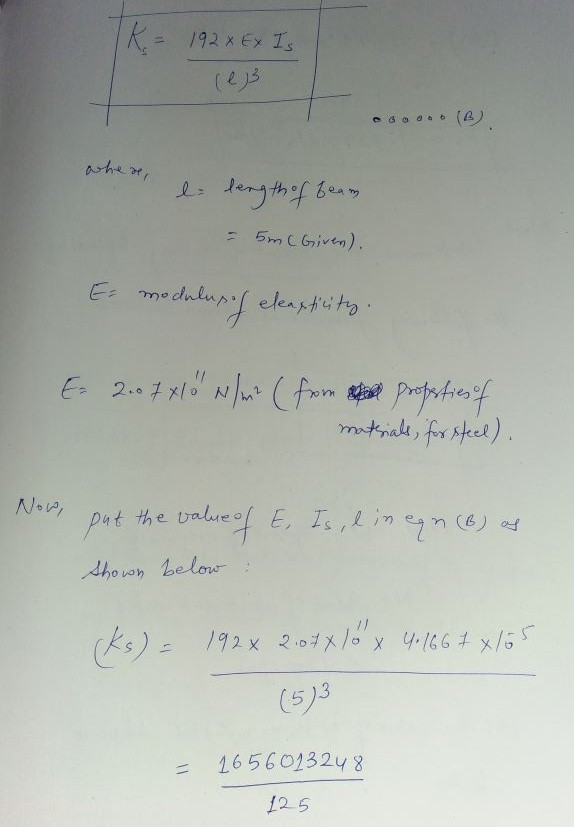 Ks = 192 x E x Is
(l)3
oooooo (B).
where,
l = length of beam
= 5m (Given).
E = modulus of eleasticity.
E = 2.07 x 10^11 N/m2 (from properties of
materials, for steel).
Now, put the value of E, Is, l in eqn (B) as
shown below :
(Ks) = 192 x 2.07 x 10^11 x 4.1667 x 10^-5
(5)3
= 1656013248
125